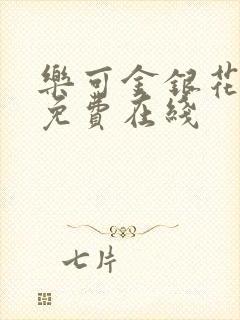 樂可金銀花
免費在綫
七片